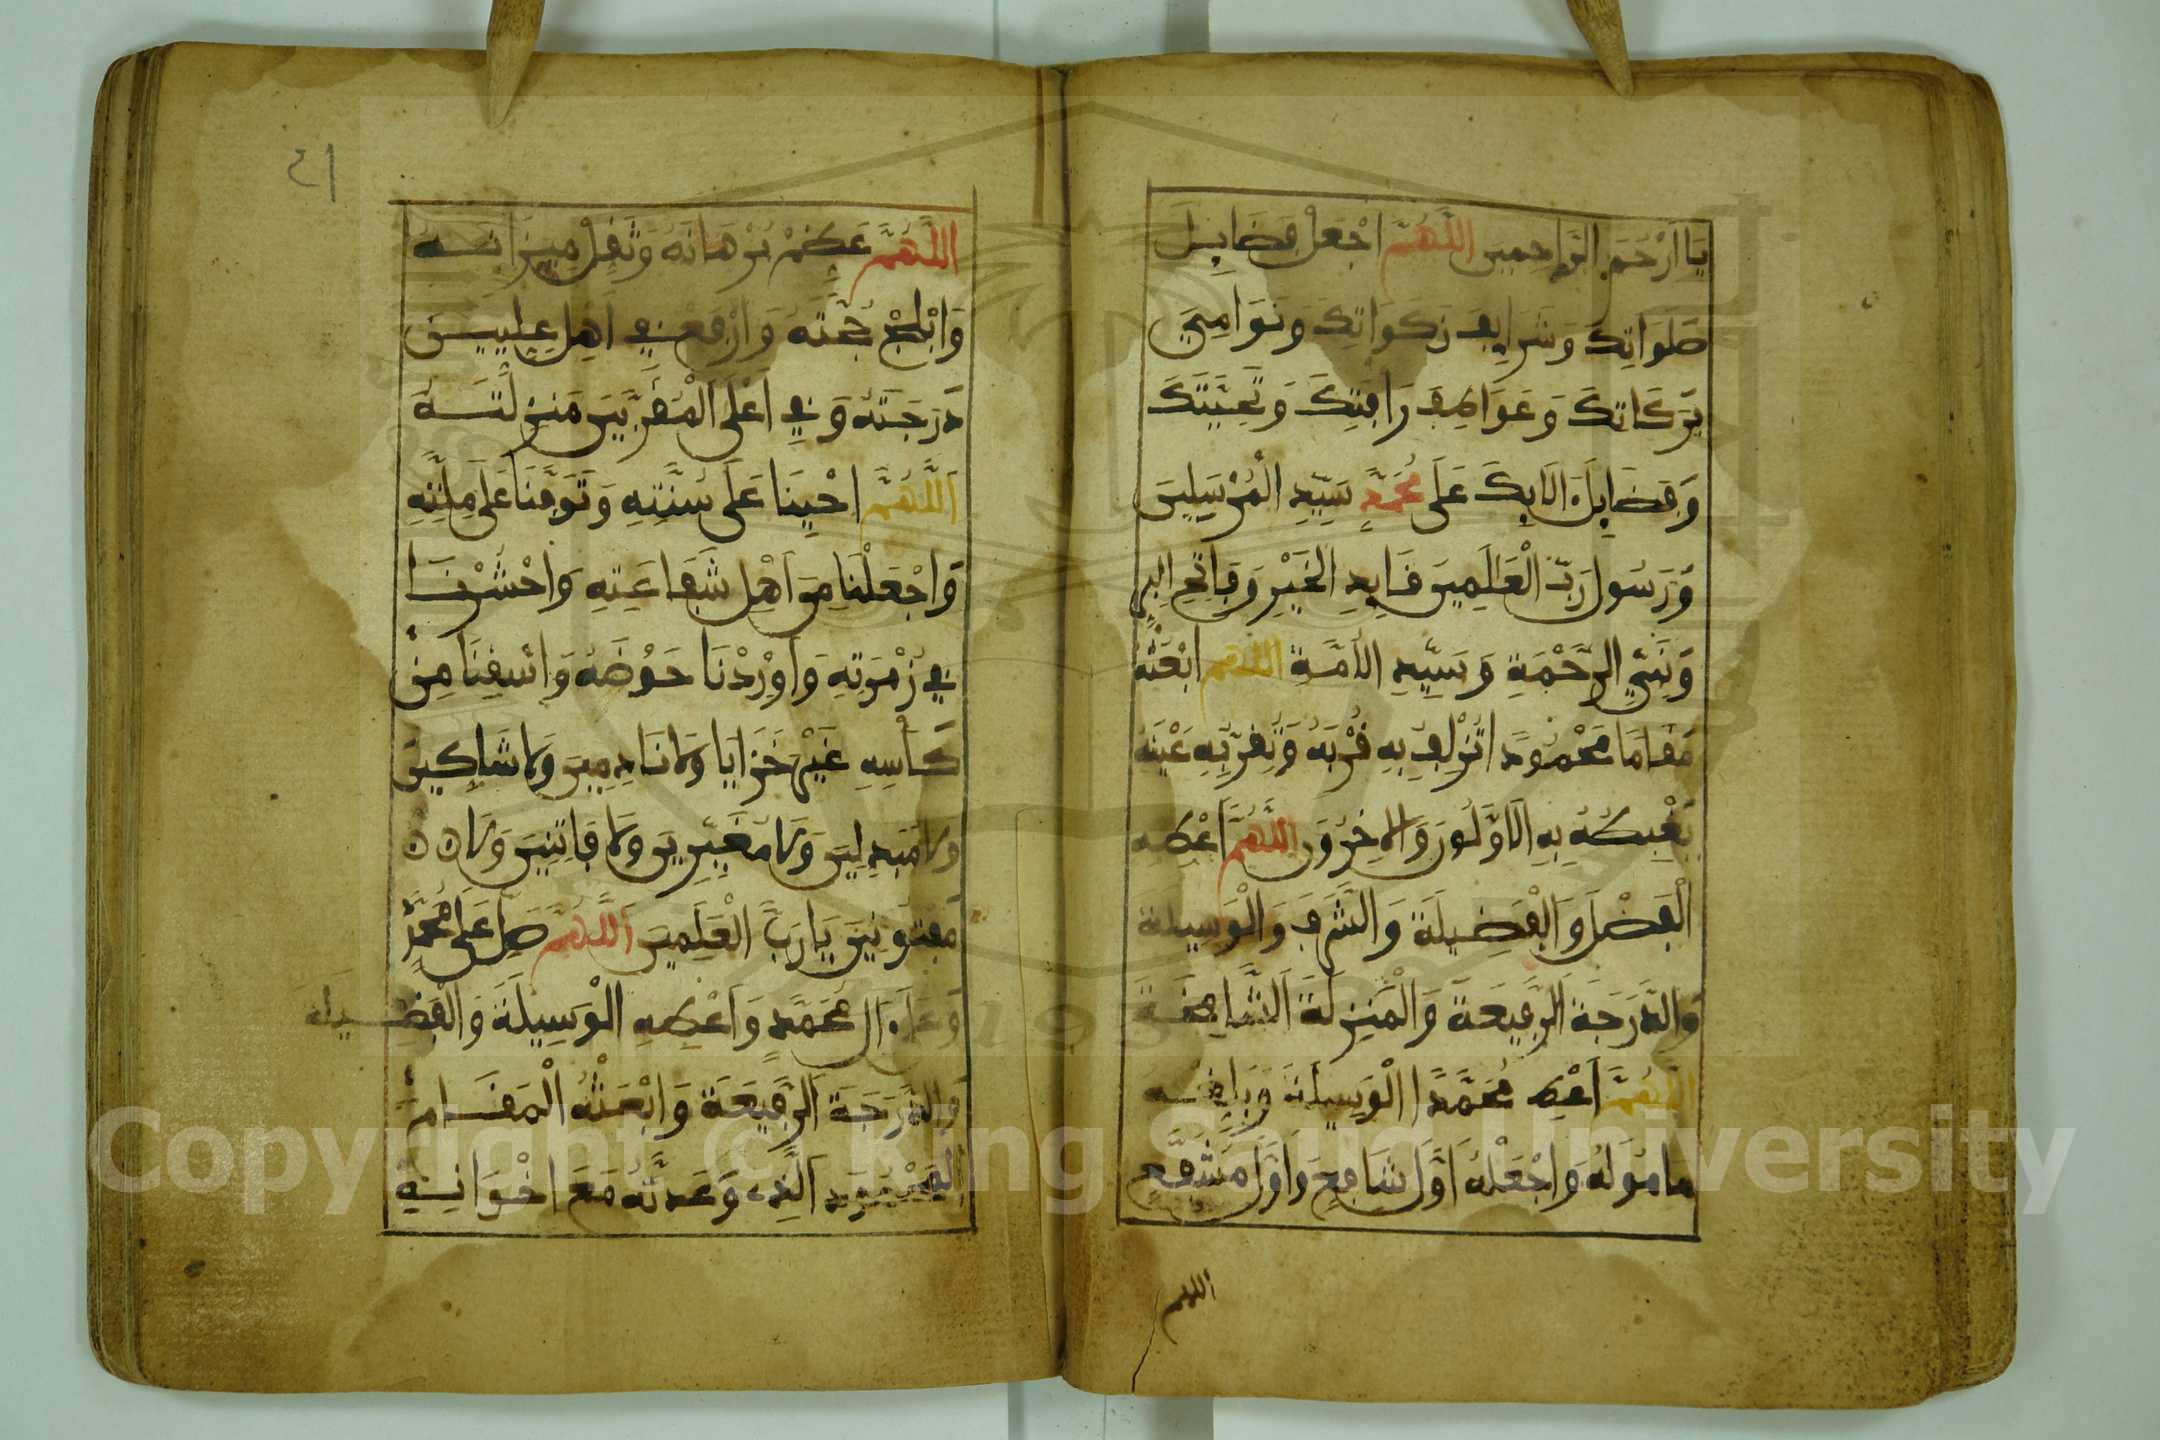 يَا أَرْحَمَ الرَّاحِمِينَ اللَّهُمَّ اجْعَلْ فَضَايِلَ
صَلَوَاتِكَ وَشَرَايِفَ زَكَوَاتِكَ وَنَوَامِيَ
بَرَكَاتِكَ وَعَوَاطِفَ رَافَتِكَ وَتَحِيَّتَكَ
وَفَضَايِلَ الَايِكَ عَلَى مُحَمَّدٍ سَيِّدِ الْمُرْسَلِينَ
وَرَسُولِ رَبِّ الْعَالَمِينَ قَايِدِ الْخَيْرِ وَفَاتِحِ الْبِرِّ
وَنَبِيِّ الرَّحْمَةِ وَسَيِّدِ الْأُمَّةِ اللَّهُمَّ ابْعَثْهُ
مَقَامًا مَحْمُودًا تُزْلِفُ بِهِ قُرْبَهُ وَتُقِرُّ بِهِ عَيْنَهُ
يَغْبِطُهُ بِهِ الْأَوَّلُونَ وَالْآخِرُونَ اللَّهُمَّ أَعْطِهِ
الْفَضْلَ وَالْفَضِيلَةَ وَالشَّرَفَ وَالْوَسِيلَةَ
وَالدَّرَجَةَ الرَّفِيعَةَ وَالْمَنْزِلَةَ الشَّامِخَةَ
اللَّهُمَّ أَعْطِ مُحَمَّدًا الْوَسِيلَةَ وَبَلِّغْهُ
مَامُولَهُ وَاجْعَلْهُ أَوَّلَ شَافِعٍ وَأَوَّلَ مُشَفَّعٍ
اللهم
٤١
اللَّهُمَّ عَظِّمْ بُرْهَانَهُ وَثَقِّلْ مِيزَانَهُ
وَأَبْلِجْ حُجَّتَهُ وَارْفَعْ فِي أَهْلِ عِلِّيِّينَ
دَرَجَتَهُ وَفِي أَعْلَى الْمُقَرَّبِينَ مَنْزِلَتَهُ
اللَّهُمَّ أَحْيِنَا عَلَى سُنَّتِهِ وَتَوَفَّنَا عَلَى مِلَّتِهِ
وَاجْعَلْنَا مِنْ أَهْلِ شَفَاعَتِهِ وَاحْشُرْنَا
فِي زُمْرَتِهِ وَأَوْرِدْنَا حَوْضَهُ وَاسْقِنَا مِنْ
كَأْسِهِ غَيْرَ خَزَايَا وَلَا نَادِمِينَ وَلَا شَاكِّينَ
وَلَا مُبَدِّلِينَ وَلَا مُغَيِّرِينَ وَلَا فَاتِنِينَ وَلَا
مَفْتُونِينَ يَا رَبَّ الْعَالَمِينَ اللَّهُمَّ صَلِّ عَلَى مُحَمَّدٍ
وَعَلَى آلِ مُحَمَّدٍ وَأَعْطِهِ الْوَسِيلَةَ وَالْفَضِيلَةَ
وَالدَّرَجَةَ الرَّفِيعَةَ وَابْعَثْهُ الْمَقَامَ
الْمَحْمُودَ الَّذِي وَعَدْتَهُ مَعَ إِخْوَانِهِ
Copyright © King Saud University